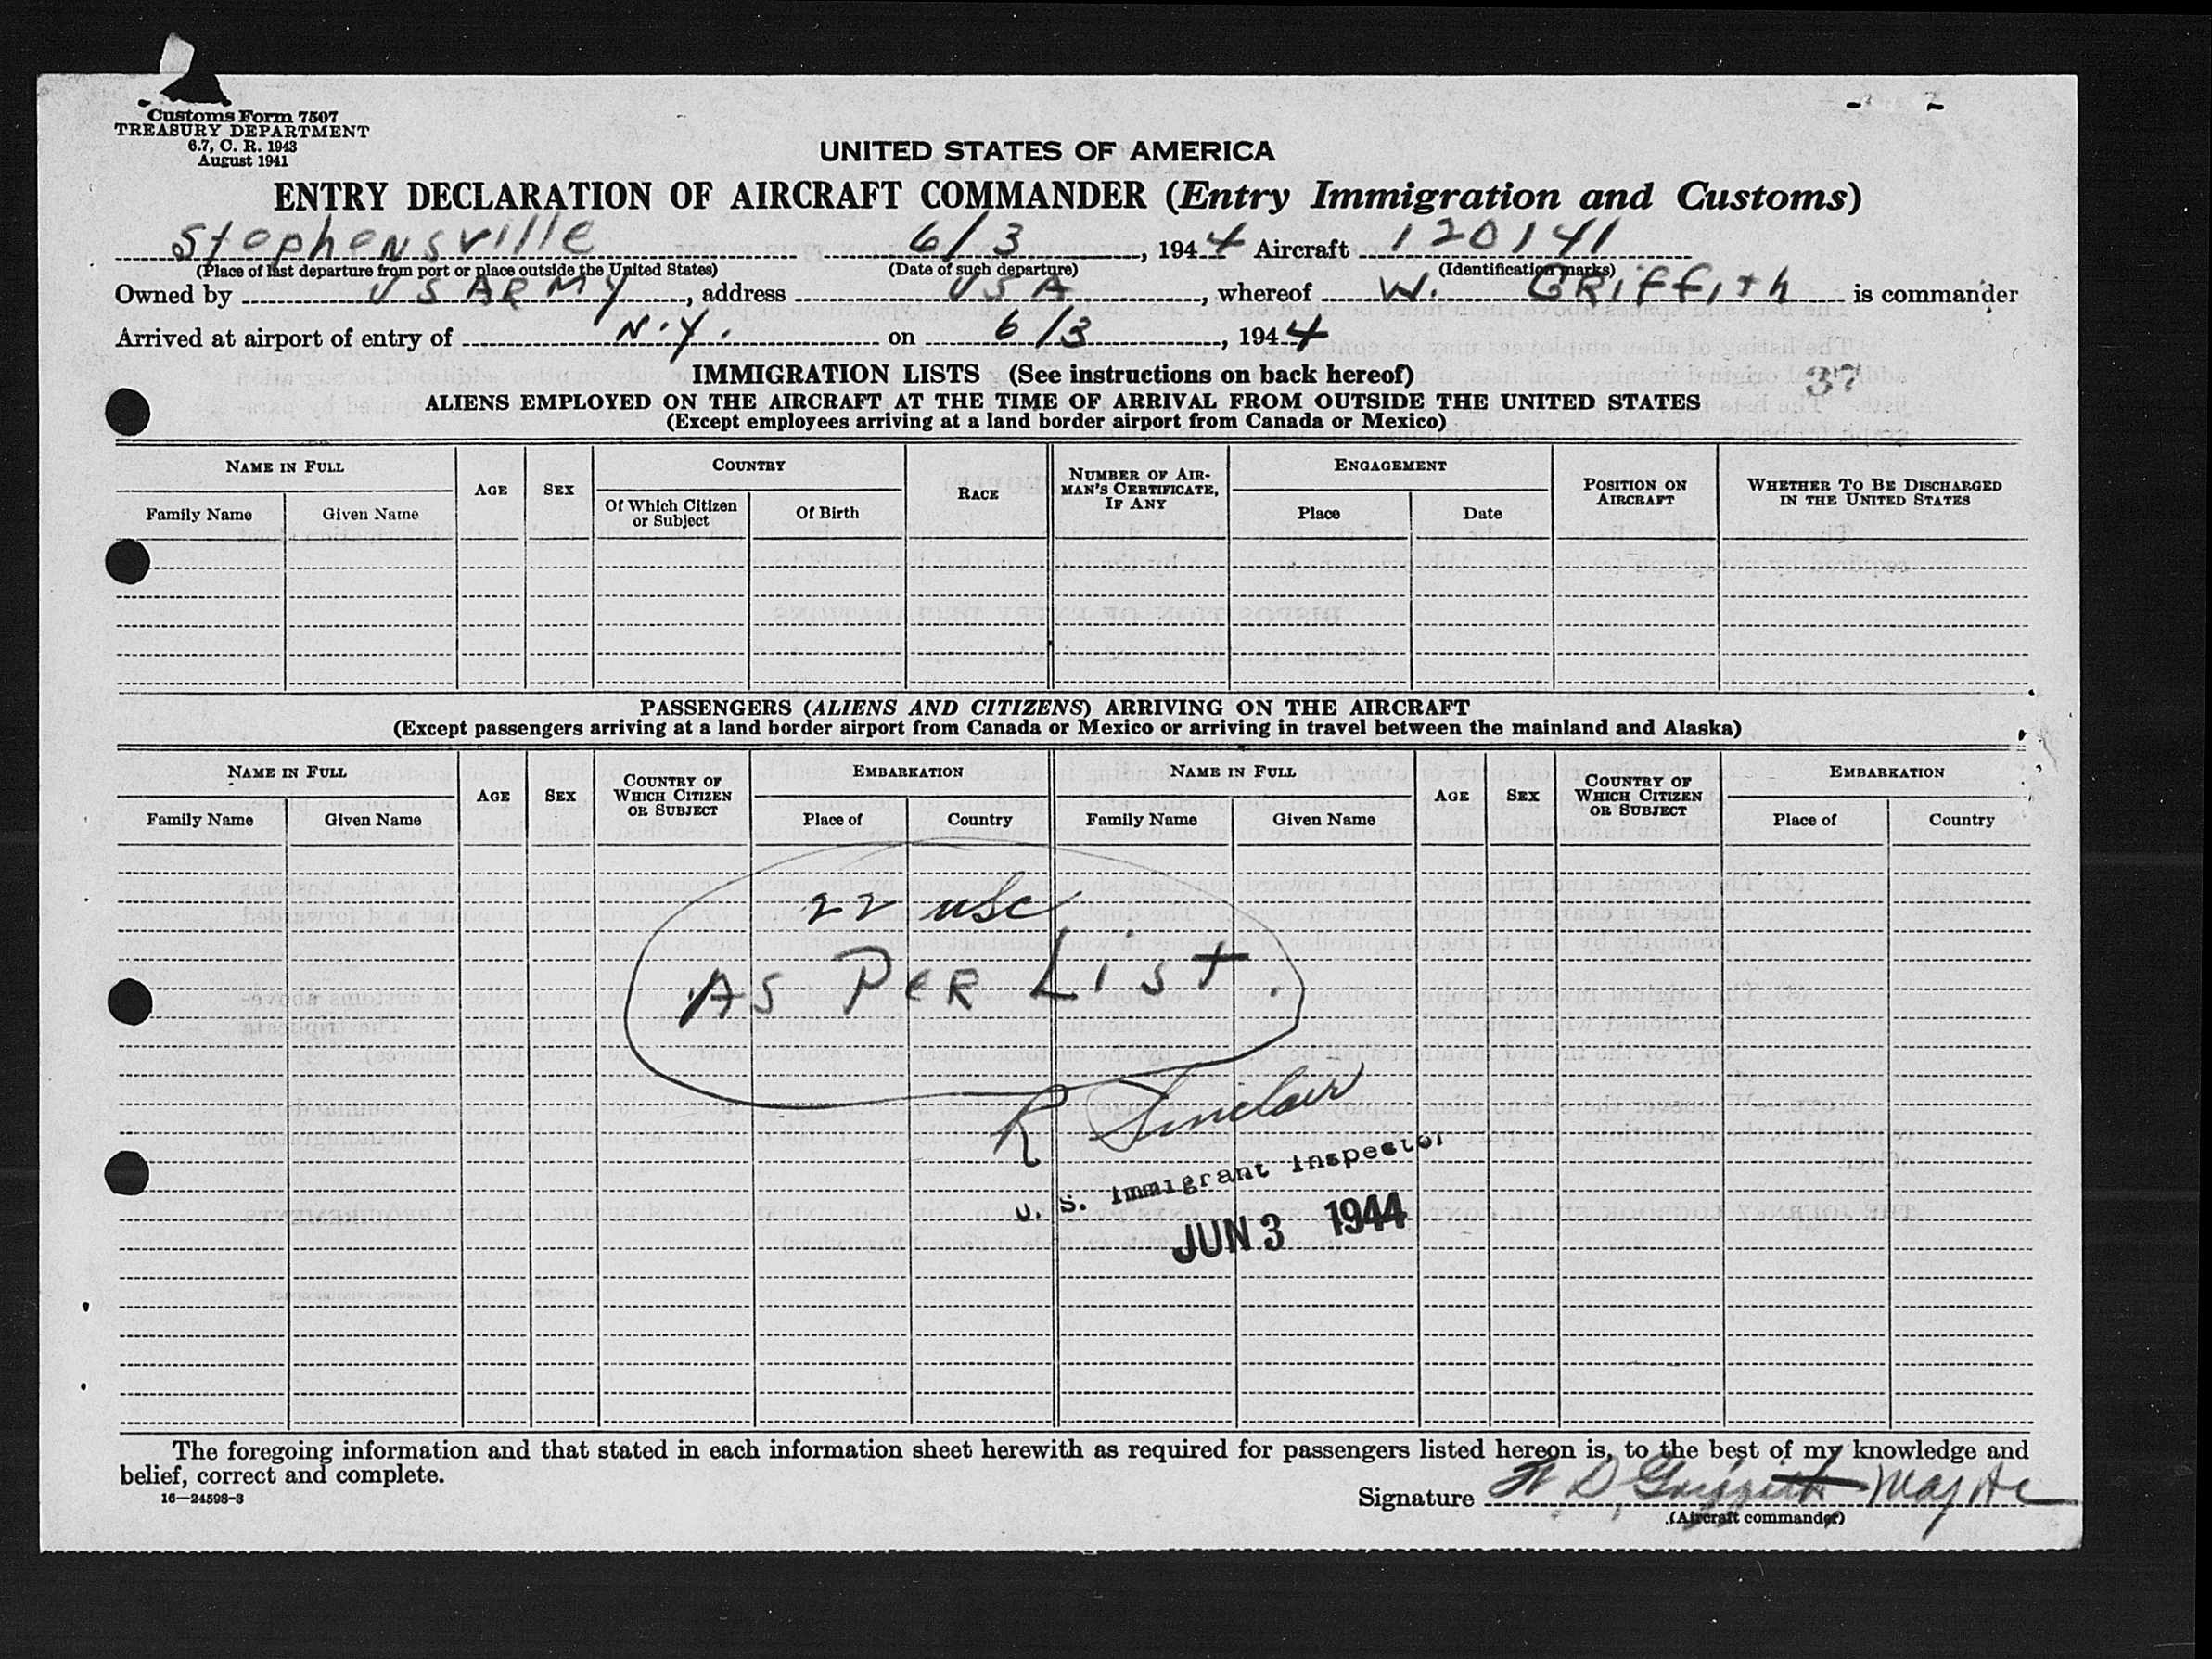 Customs Form 7507
TREASURY DEPARTMENT
6.7, C. R. 1943
August 1941
UNITED STATES OF AMERICA
ENTRY DECLARATION OF AIRCRAFT COMMANDER (Entry Immigration and Customs)
Stephensville 6/3, 1944 Aircraft 120141
(Place of last departure from port or place outside the United States) (Date of such departure) (Identification marks)
Owned by US ARMY, address USA, whereof W. GRIFFITH is commander
Arrived at airport of entry of N.Y. on 6/3, 1944
IMMIGRATION LISTS (See instructions on back hereof)
37
ALIENS EMPLOYED ON THE AIRCRAFT AT THE TIME OF ARRIVAL FROM OUTSIDE THE UNITED STATES
(Except employees arriving at a land border airport from Canada or Mexico)
NAME IN FULL AGE SEX COUNTRY RACE NUMBER OF AIRMAN'S CERTIFICATE, IF ANY ENGAGEMENT POSITION ON AIRCRAFT WHETHER TO BE DISCHARGED IN THE UNITED STATES
Family Name Given Name Of Which Citizen or Subject Of Birth Place Date
PASSENGERS (ALIENS AND CITIZENS) ARRIVING ON THE AIRCRAFT
(Except passengers arriving at a land border airport from Canada or Mexico or arriving in travel between the mainland and Alaska)
NAME IN FULL AGE SEX COUNTRY OF WHICH CITIZEN OR SUBJECT EMBARKATION NAME IN FULL AGE SEX COUNTRY OF WHICH CITIZEN OR SUBJECT EMBARKATION
Family Name Given Name Place of Country Family Name Given Name Place of Country
22 usc
AS PER LIST.
R Sinclair
U. S. Immigrant Inspector
JUN 3 1944
The foregoing information and that stated in each information sheet herewith as required for passengers listed hereon is, to the best of my knowledge and
belief, correct and complete.
16—24598-3
Signature W D Griffith Maj Ac
(Aircraft commander)